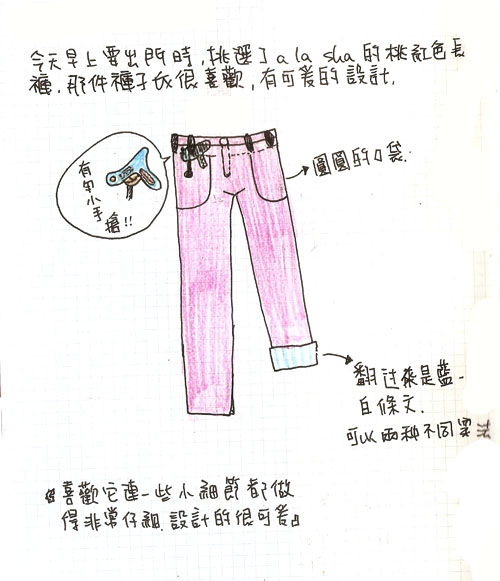 今天早上要出門時,挑選了a la sha的桃紅色長
褲.那件褲子我很喜歡,有可愛的設計,
有勾小手
槍!!
圓圓的口袋.
翻过來是藍-
白條文.
可以两种不同穿
法
『喜歡它連一些小細節都做
得非常仔細.設計的很可愛』